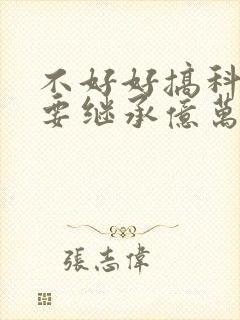 不好好搞科
要继承億萬
張志偉